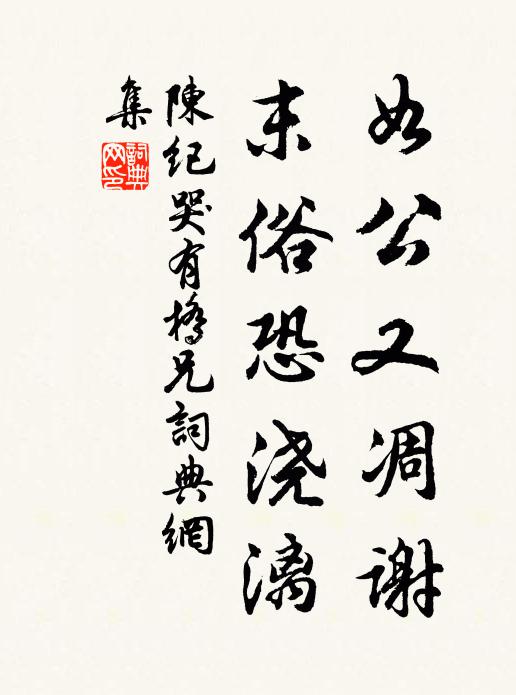 如公又凋谢
末俗恐浇漓
陳紀哭有橋兄詞典網
集
詞典网印